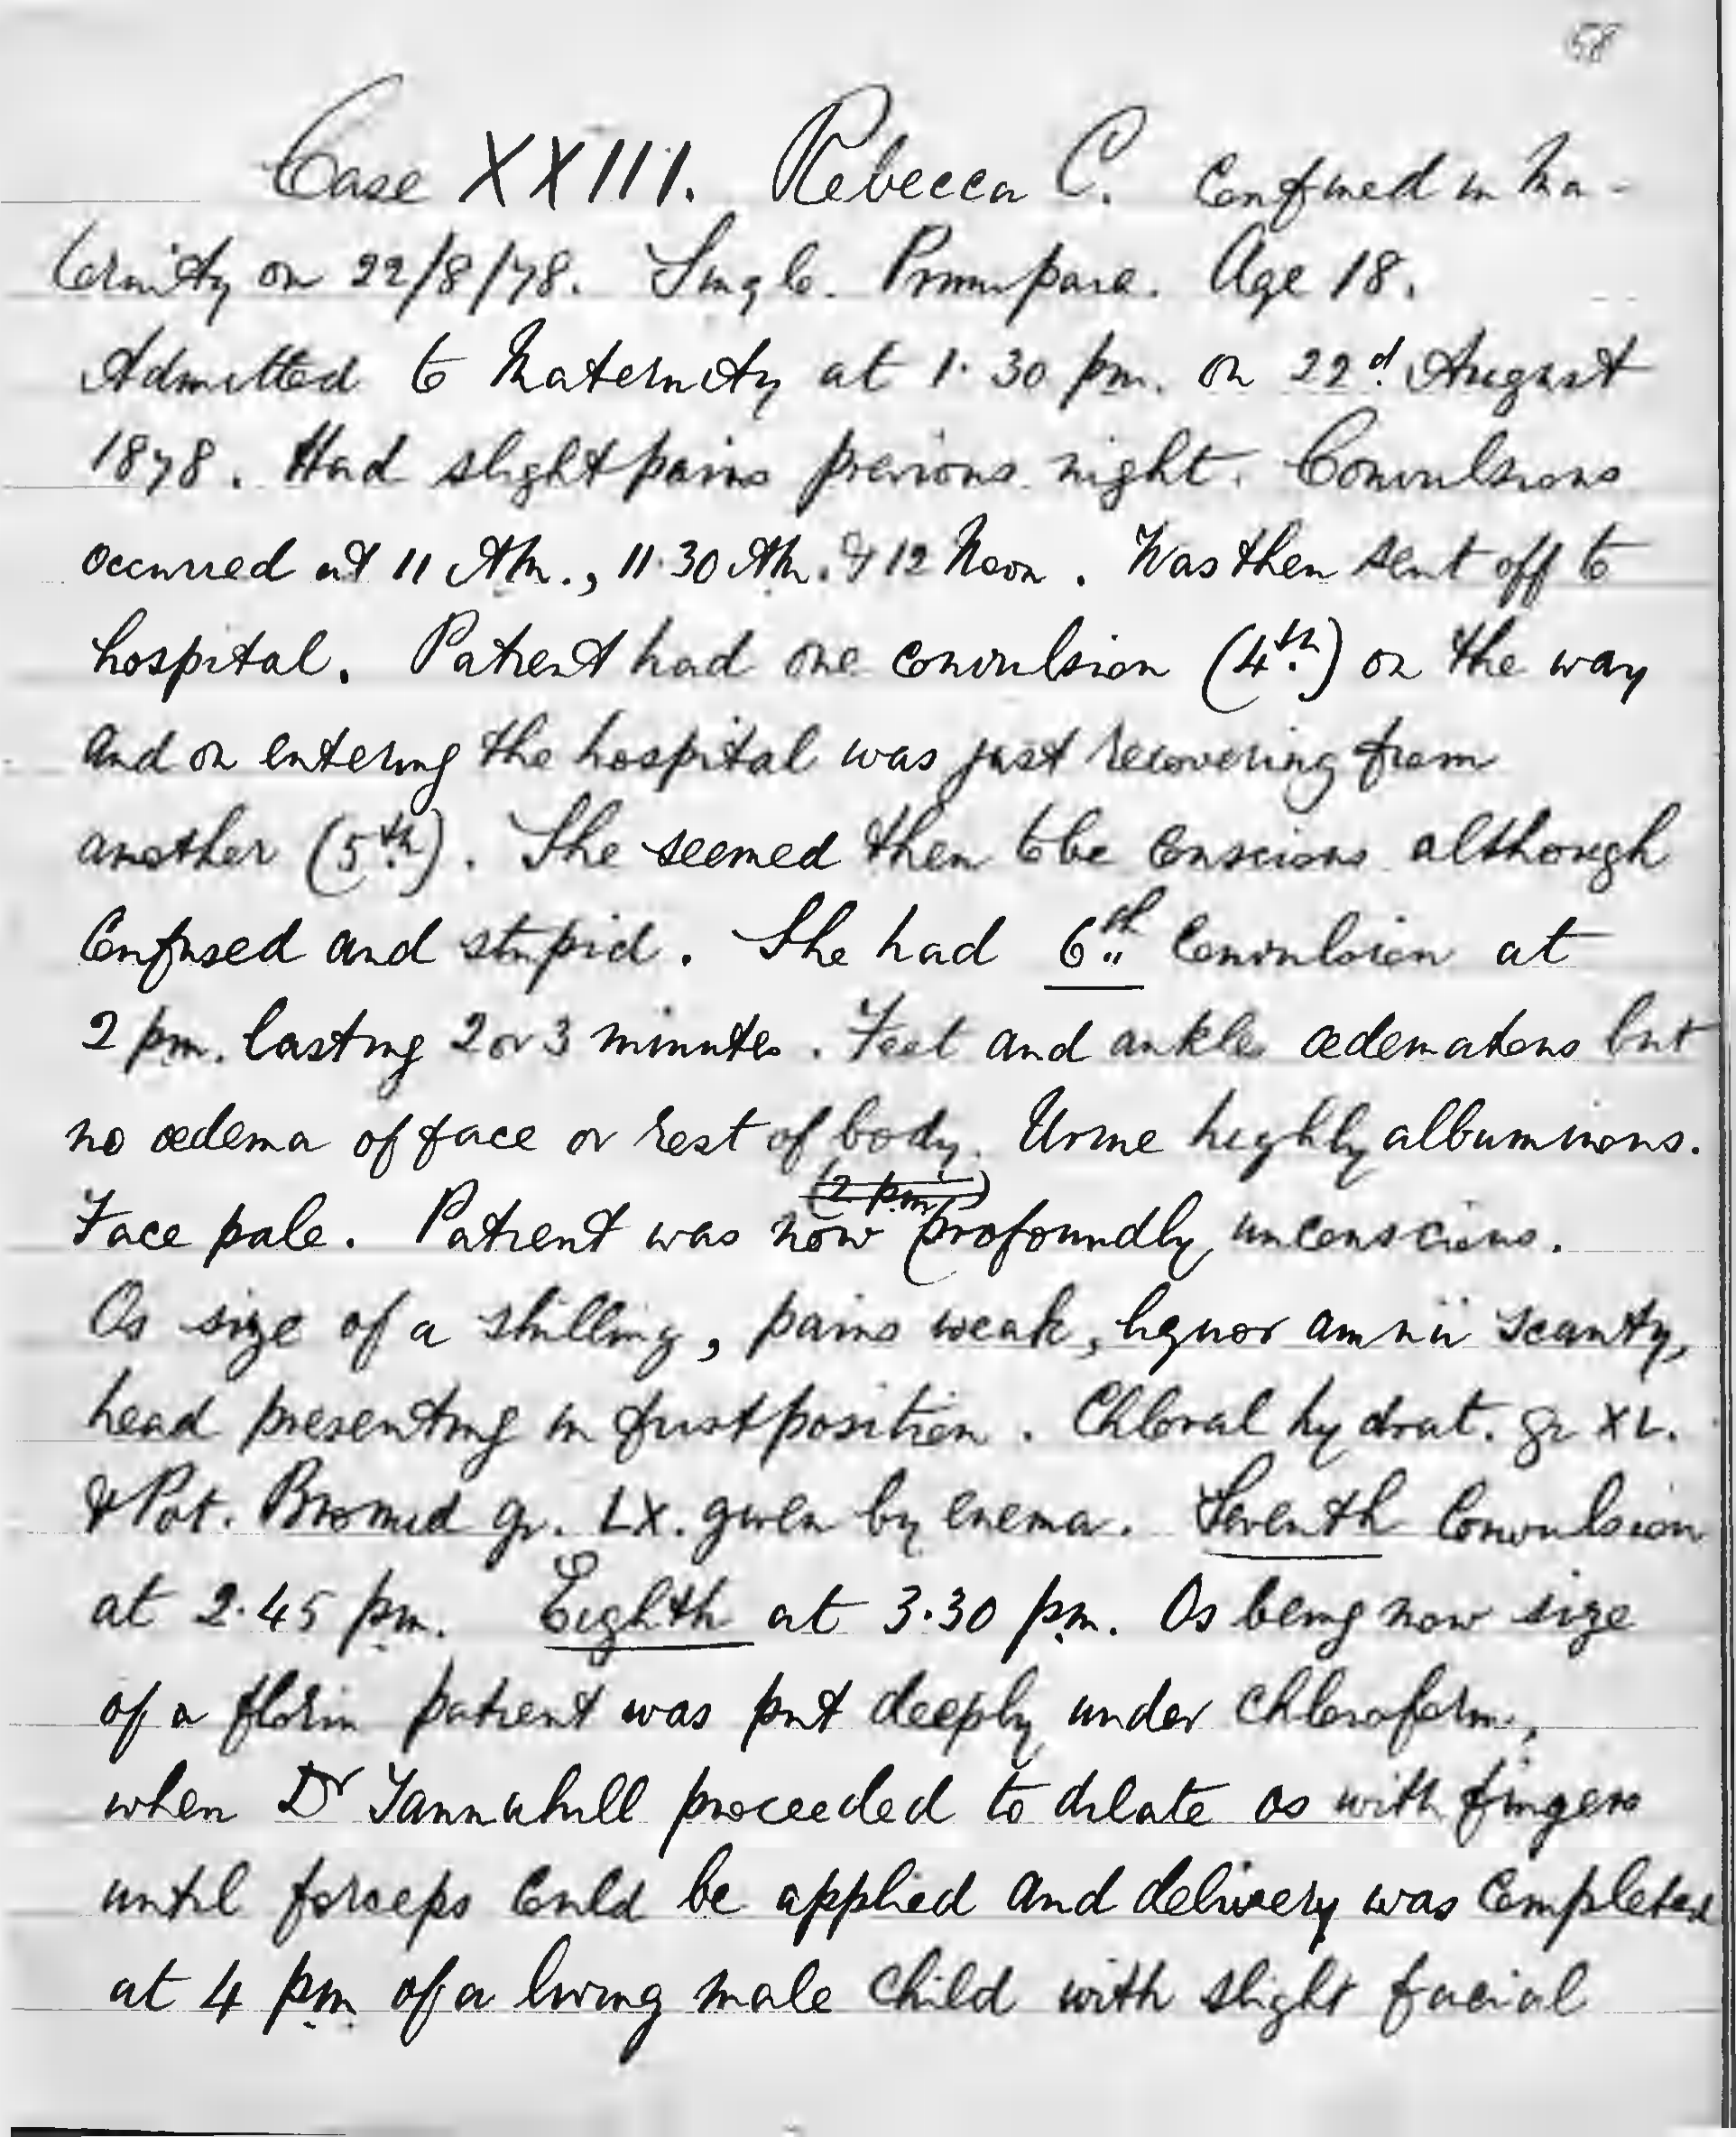 58
Case XXIII. Rebecca C. Confined in Ma-
ternity on 22/8/78. Single. Primipara. Age 18.
Admitted to Maternity at 1.30 pm. on 22d. August
1878. Had slight pains previous night. Convulsions
occurred at 11 AM., 11.30 AM. & 12 Noon. Was then sent off to
hospital. Patient had one convulsion (4th.) on the way
and on entering the hospital was just recovering from
another (5th.). She seemed then to be conscious although
confused and stupid. She had 6th convulsion at
2 pm. lasting 2 or 3 minutes. Feet and ankles œdematous but
no œdema of face or rest of body. Urine highly albuminous.
(2 pm.)
Face pale. Patient was now profoundly unconscious.
Os size of a shilling, pains weak, liquor amnii scanty,
head presenting in first position. Chloral hydrat. gr XL.
& Pot. Bromid gr. LX. given by enema. Seventh convulsion
at 2.45 pm. Eighth at 3.30 pm. Os being now size
of a florin patient was put deeply under chloroform,
when Dr Tannahill proceeded to dilate os with fingers
until forceps could be applied and delivery was completed
at 4 pm of a living male child with slight facial